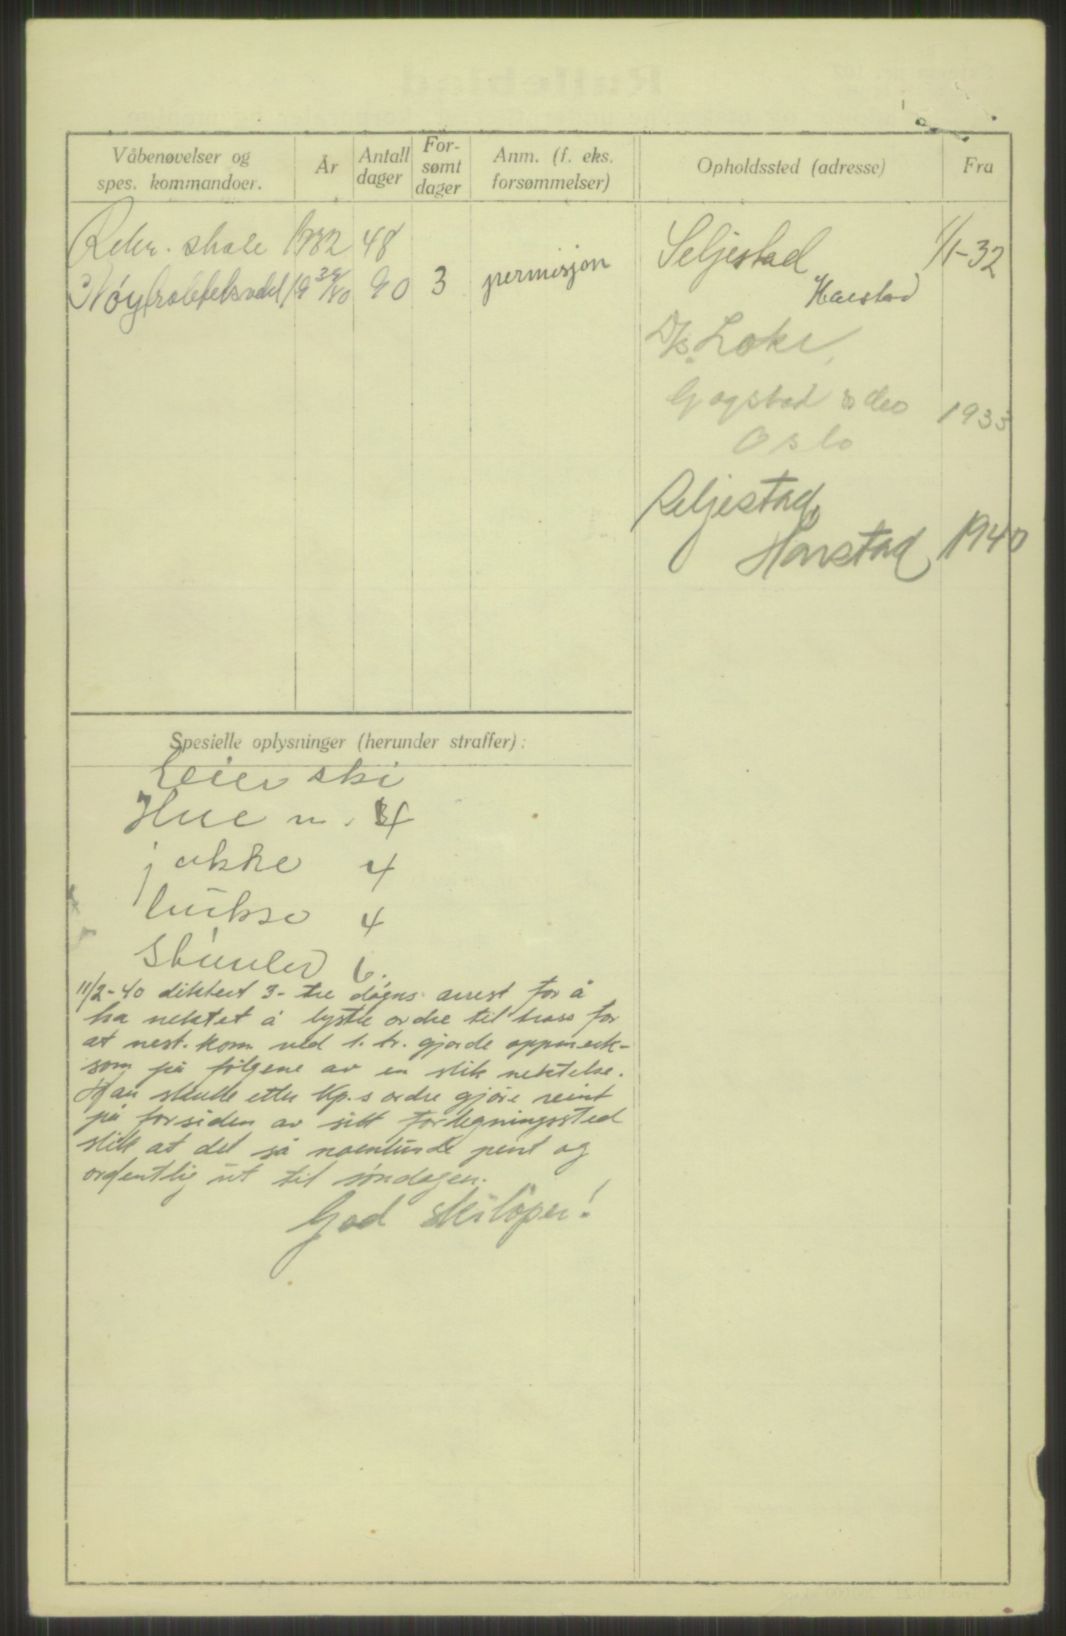 Våbenøvelser og
spes. kommandoer.
År
Antall
dager
For-
sømt
dager
Anm. (f. eks.
forsømmelser)
Opholdssted (adresse)
Fra
Rekr. skole 1932 48
Nøytralitetsvakt 1939/40 90 3 permisjon
Seljestad 1/1-32
Harstad
D/S. Loke,
1933
Oslo
Seljestad,
Harstad 1940
Spesielle oplysninger (herunder straffer):
Leier ski
Hue n. 4
jakke 4
bukse 4
Støvler 6.
11/2-40 diktert 3- tre døgns arrest for å
ha nektet å lystre ordre til tross for
at nest. kom. ved 1. tr. gjorde oppmerk-
som på følgene av en slik nektelse.
Han skulle etter Kp.s ordre gjøre reint
på forsiden av sitt forlegningssted
slik at det så noenlunde pent og
ordentlig ut til søndagen.
God skiløper!